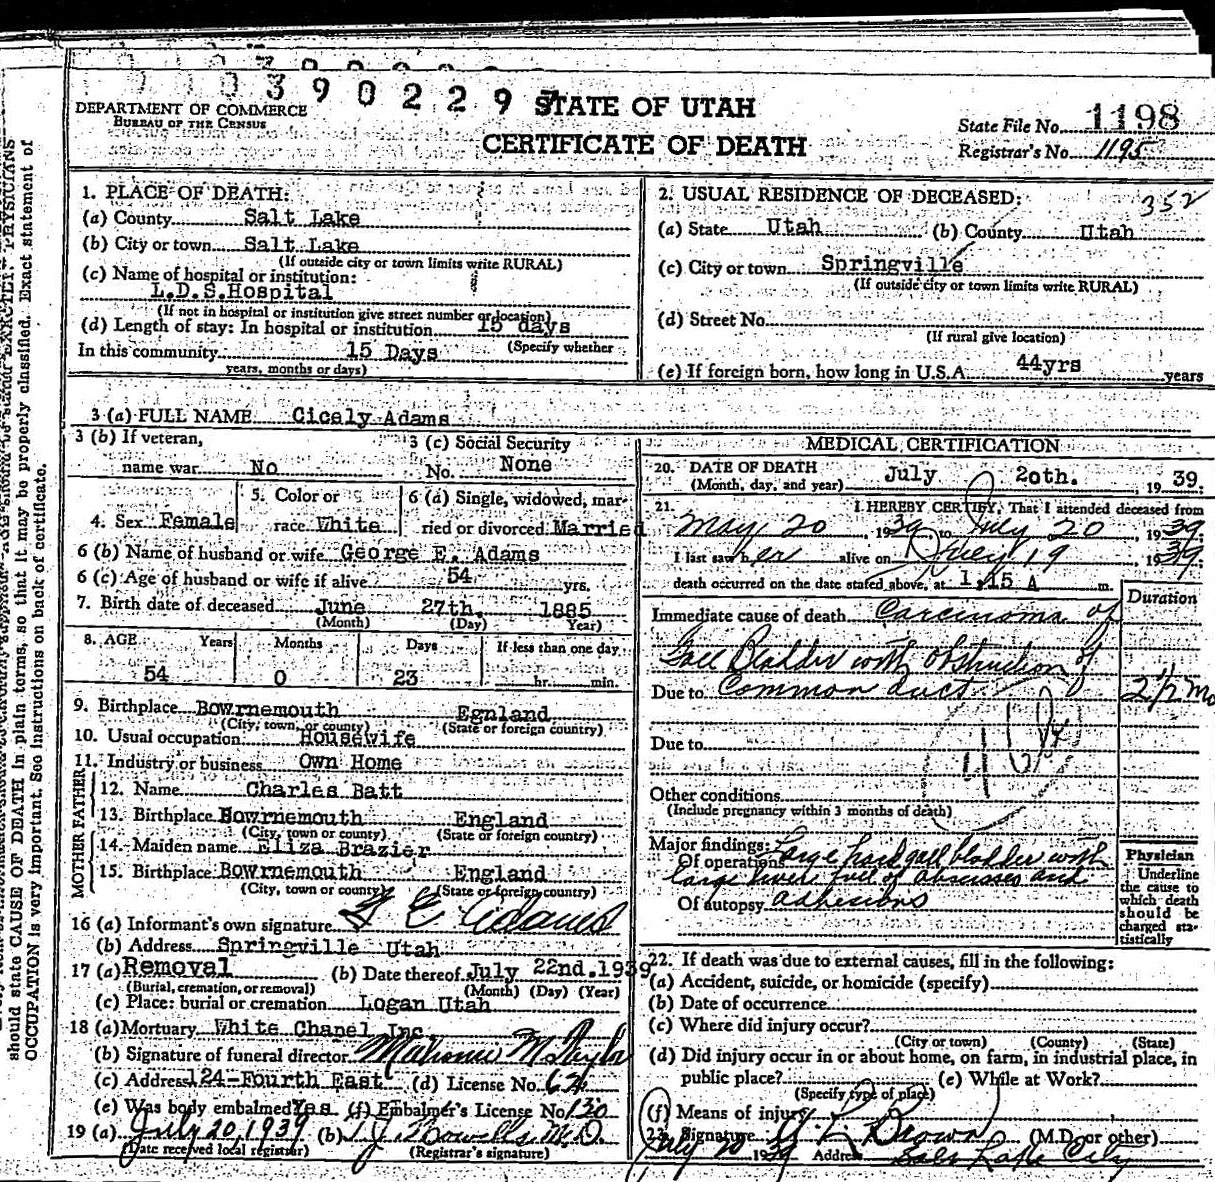 0390229
DEPARTMENT OF COMMERCE
BUREAU OF THE CENSUS
STATE OF UTAH
CERTIFICATE OF DEATH
State File No. 1198
Registrar's No. 1195
1. PLACE OF DEATH:
(a) County Salt Lake
(b) City or town Salt Lake
(If outside city or town limits write RURAL)
(c) Name of hospital or institution:
L.D.S.Hospital
(If not in hospital or institution give street number or location)
(d) Length of stay: In hospital or institution 15 days
In this community 15 Days (Specify whether
years, months or days)
2. USUAL RESIDENCE OF DECEASED: 352
(a) State Utah (b) County Utah
(c) City or town Springville
(If outside city or town limits write RURAL)
(d) Street No.
(If rural give location)
(e) If foreign born, how long in U.S.A. 44yrs years
3 (a) FULL NAME Cicely Adams
3 (b) If veteran,
name war No
3 (c) Social Security
No. None
4. Sex Female
5. Color or
race White
6 (a) Single, widowed, mar-
ried or divorced Married
6 (b) Name of husband or wife George E. Adams
6 (c) Age of husband or wife if alive 54 yrs.
7. Birth date of deceased June 27th. 1885
(Month) (Day) Year)
8. AGE Years Months Days If less than one day
54 0 23 hr. min.
9. Birthplace Bowrnemouth Egnland
(City, town, or county) (State or foreign country)
10. Usual occupation Housewife
11. Industry or business Own Home
FATHER
12. Name Charles Batt
13. Birthplace Bowrnemouth England
(City, town or county) (State or foreign country)
MOTHER
14. Maiden name Eliza Brazier
15. Birthplace Bowrnemouth England
(City, town or county) (State or foreign country)
16 (a) Informant's own signature G E Adams
(b) Address Springville Utah
17 (a) Removal (b) Date thereof July 22nd.1939
(Burial, cremation, or removal) (Month) (Day) (Year)
(c) Place: burial or cremation Logan Utah
18 (a) Mortuary White Chapel Inc
(b) Signature of funeral director
(c) Address 124-Fourth East (d) License No. 62
(e) Was body embalmed Yes (f) Embalmer's License No. 130
19 (a) July 20, 1939 (b) T J Howells M.D.
(Date received local registrar) (Registrar's signature)
MEDICAL CERTIFICATION
20. DATE OF DEATH
(Month, day, and year) July 20th. , 19 39.
21. I HEREBY CERTIFY, That I attended deceased from
May 20 , 1939 to July 20 , 1939
I last saw her alive on July 19 , 1939:
death occurred on the date stated above, at 1:15 A m.
Duration
Immediate cause of death Carcinoma of
Gall Bladder with obstruction of
Due to Common duct 2 1/2 mo
Due to
Other conditions
(Include pregnancy within 3 months of death)
Major findings:
Of operations Large hard gall bladder with
large liver full of abscesses and
Of autopsy adhesions
Physician
Underline
the cause to
which death
should be
charged sta-
tistically
22. If death was due to external causes, fill in the following:
(a) Accident, suicide, or homicide (specify)
(b) Date of occurrence
(c) Where did injury occur?
(City or town) (County) (State)
(d) Did injury occur in or about home, on farm, in industrial place, in
public place? (e) While at Work?
(Specify type of place)
(f) Means of injury
23. Signature Brown (M.D. or other)
July 20 1939 Address Salt Lake City
should state CAUSE OF DEATH in plain terms, so that it may be properly classified. Exact statement of
OCCUPATION is very important. See instructions on back of certificate.